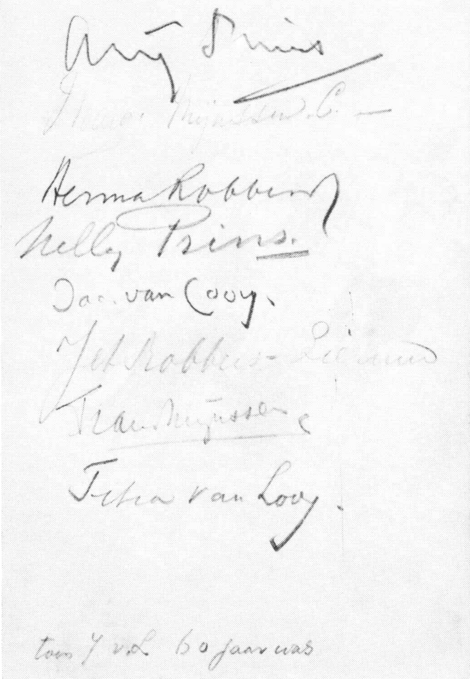 Arij Prins
Mijnssen. C.
Herman Robbers
Nelly Prins.
Jac. van Looy.
Jet Robbers-
Frans Mijnssen
Titia van Looy.
toen J v L 60 jaar was